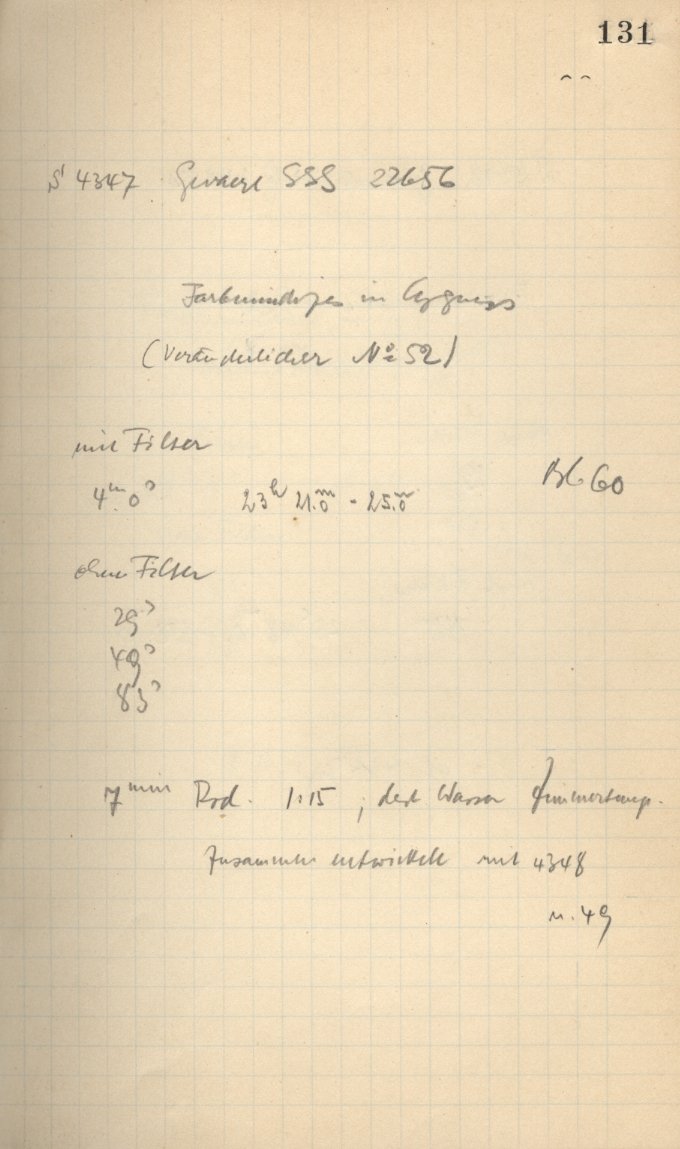 131
S 4347 Gevaert SSS 22656
Farbenindizes in Cygnus
(Veränderlicher No 52)
mit Filter
4m.0s 23h 21.m0 - 25.m0
60
ohne Filter
29s
49s
83s
7min Rod. 1:15, dest Wasser Zimmertemp.
Zusammen entwickelt mit 4348
u. 49